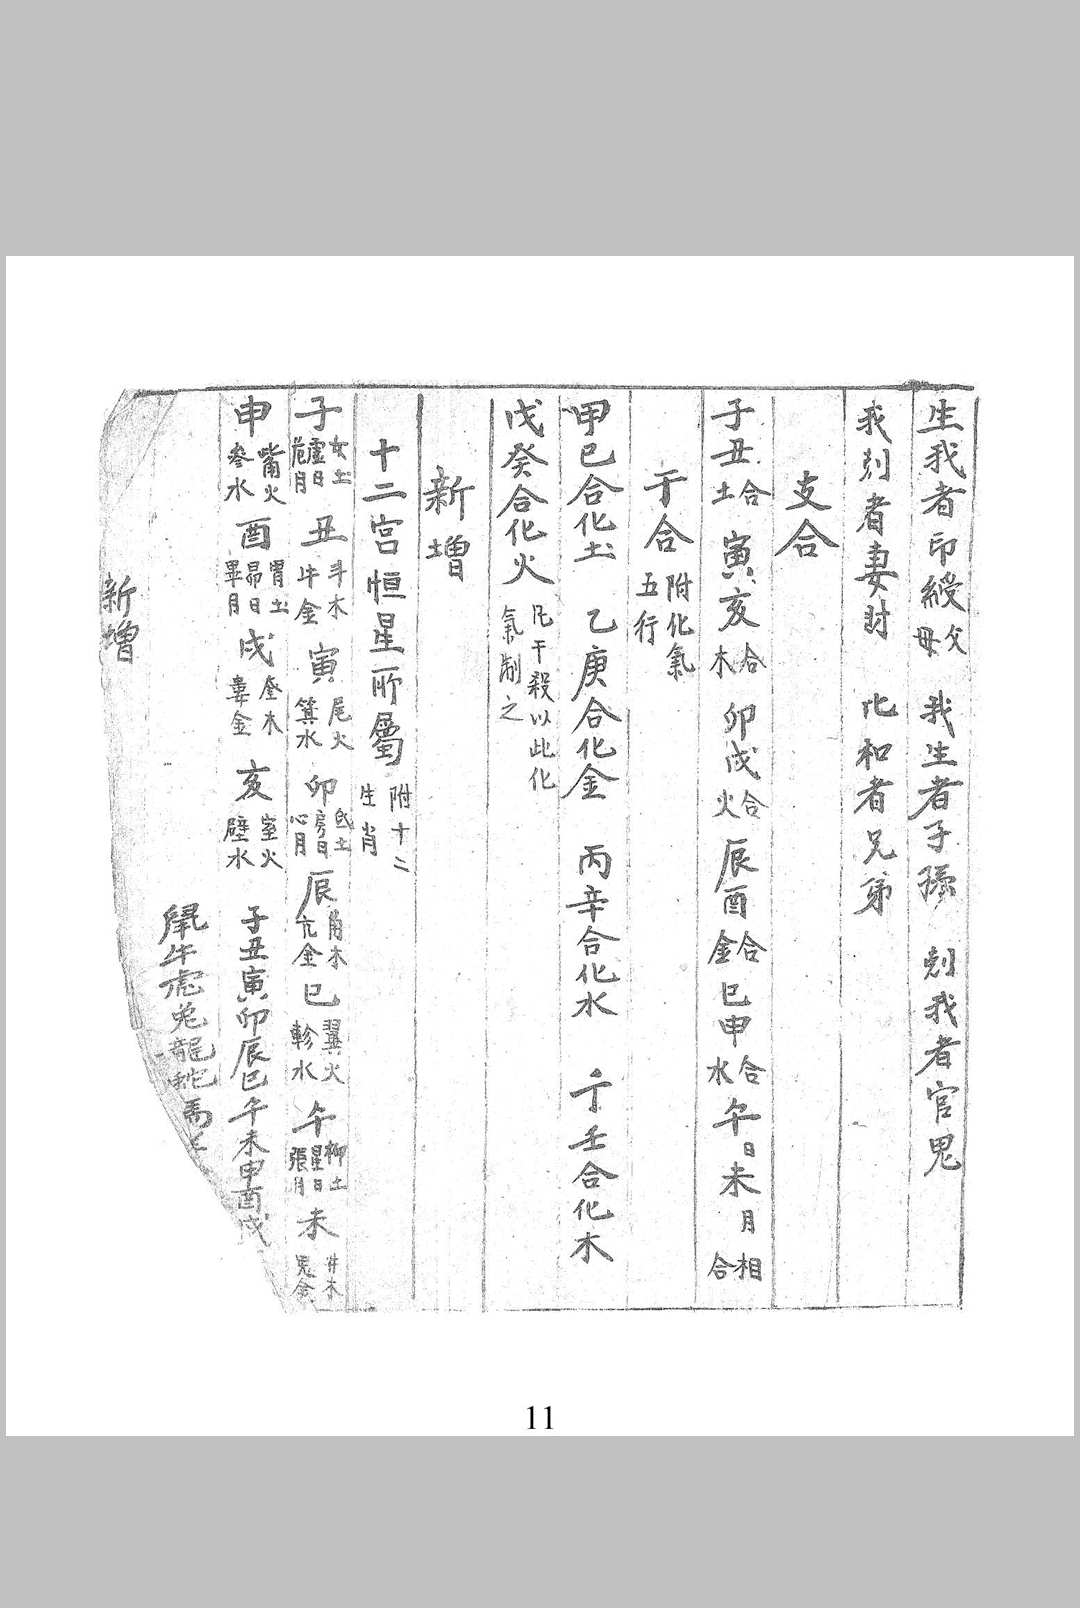 生我者印綬父母　我生者子孫　剋我者官鬼
我剋者妻財　比和者兄弟
支合
子丑合土　寅亥合木　卯戌合火　辰酉合金　巳申合水　午日未月相合
干合　附化氣五行
甲己合化土　乙庚合化金　丙辛合化水　丁壬合化木
戊癸合化火　凡干殺以此化氣制之
新增
十二宮恒星所屬　附十二生肖
子女土虛日危月　丑斗木牛金　寅尾火箕水　卯氐土房日心月　辰角木亢金　巳翼火軫水　午柳土星日張月　未井木鬼金
申觜火參水　酉胃土昴日畢月　戌奎木婁金　亥室火壁水　子丑寅卯辰巳午未申酉戌
鼠牛虎兔龍蛇馬
新增
11